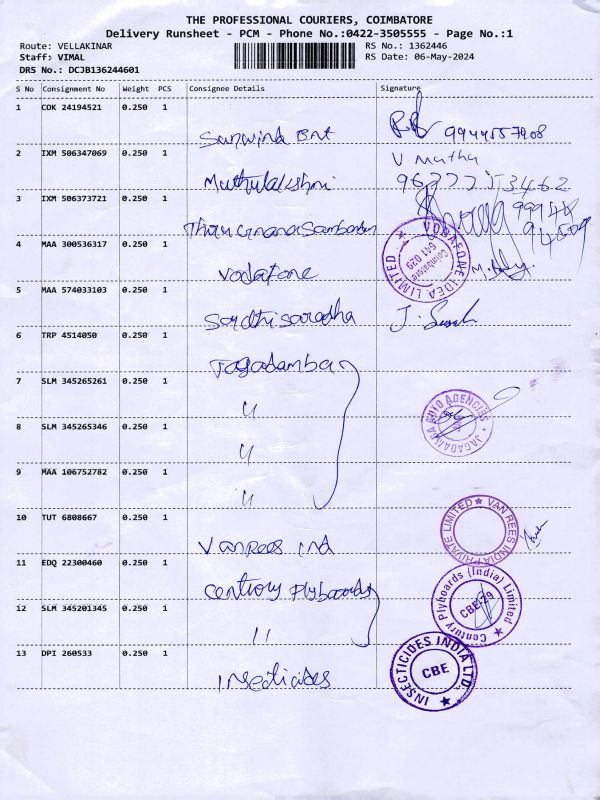 THE PROFESSIONAL COURIERS, COIMBATORE
Delivery Runsheet - PCM - Phone No.:0422-3505555 - Page No.:1
Route: VELLAKINAR
RS No.: 1362446
Staff: VIMAL
RS Date: 06-May-2024
DRS No.: DCJB136244601
S No Consignment No Weight PCS Consignee Details Signature
1 COK 24194521 0.250 1
9944557908
2 IXM 506347069 0.250 1
V Muthu
Muthulakshmi
3 IXM 506373721 0.250 1
Thirugnanasambandam
4 MAA 300536317 0.250 1
VODAFONE IDEA LIMITED
Coimbatore
641 029
Vodafone
5 MAA 574033103 0.250 1
J.
6 TRP 4514050 0.250 1
Jagadamba
7 SLM 345265261 0.250 1
"
JAGADAMBA AUTO AGENCIES
8 SLM 345265346 0.250 1
"
9 MAA 106752782 0.250 1
"
10 TUT 6808667 0.250 1
VAN REES INDIA PRIVATE LIMITED
Vanrees Ind
11 EDQ 22300460 0.250 1
Century Plyboards
Century Plyboards (India) Limited
CBE-29
12 SLM 345201345 0.250 1
"
13 DPI 260533 0.250 1
INSECTICIDES INDIA LTD.
CBE
Insecticides